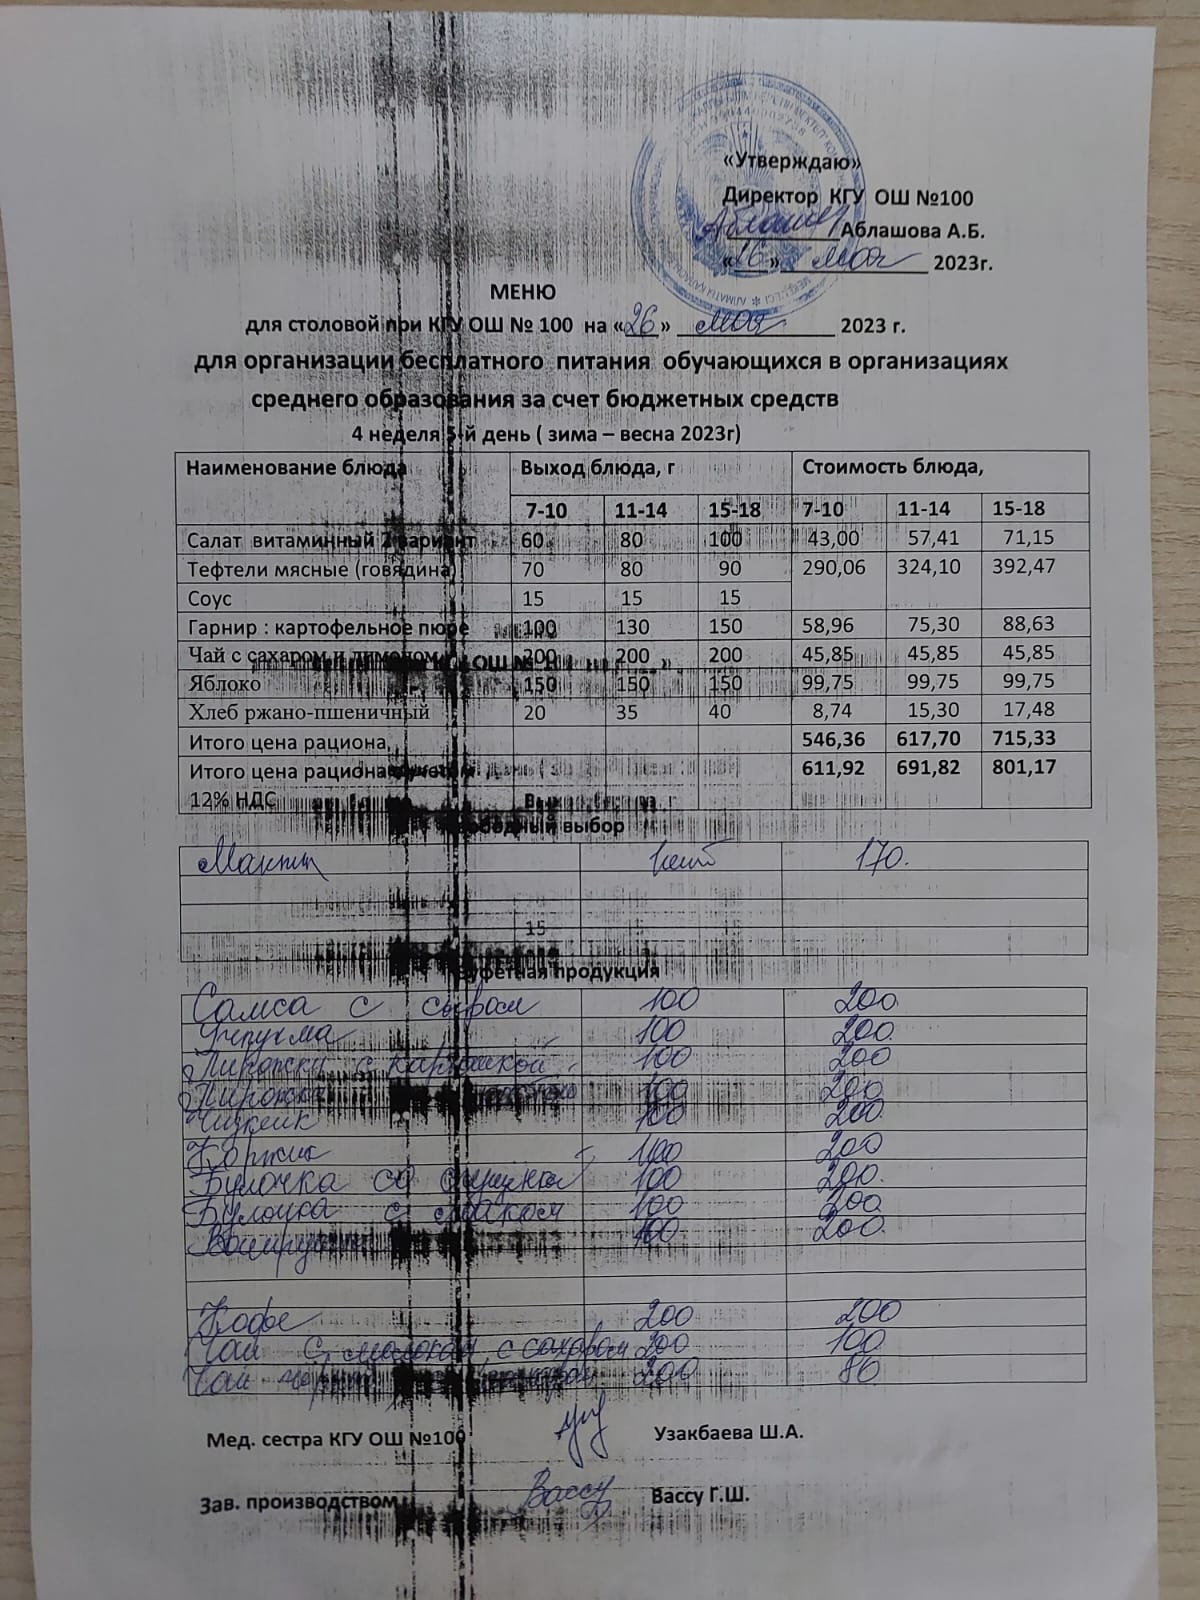 «Утверждаю»
Директор КГУ ОШ №100
Аблашова А.Б.
«26» мая 2023г.
МЕНЮ
для столовой при КГУ ОШ № 100 на «26» мая 2023 г.
для организации бесплатного питания обучающихся в организациях
среднего образования за счет бюджетных средств
4 неделя 5-й день ( зима – весна 2023г)
Наименование блюда Выход блюда, г Стоимость блюда,
7-10 11-14 15-18 7-10 11-14 15-18
Салат витаминный 2 вариант 60 80 100 43,00 57,41 71,15
Тефтели мясные (говядина) 70 80 90 290,06 324,10 392,47
Соус 15 15 15
Гарнир : картофельное пюре 100 130 150 58,96 75,30 88,63
Чай с сахаром и лимоном 200 200 200 45,85 45,85 45,85
Яблоко 150 150 150 99,75 99,75 99,75
Хлеб ржано-пшеничный 20 35 40 8,74 15,30 17,48
Итого цена рациона, 546,36 617,70 715,33
Итого цена рациона 611,92 691,82 801,17
12% НДС
выбор
Манты 1шт 170.
15
Буфетная продукция
Самса с сыром 100 200
100 200
Пирожки с картошкой 100 200
Пирожки 100 200
Чизкейк 100 200
Коржик 100 200
Булочка со сгущенкой 100 200
Булочка с маком 100 200
100 200
Кофе 200 200
Чай с молоком с сахаром 200 100
Чай 200 80
Мед. сестра КГУ ОШ №100 Узакбаева Ш.А.
Зав. производством Вассу Вассу Г.Ш.